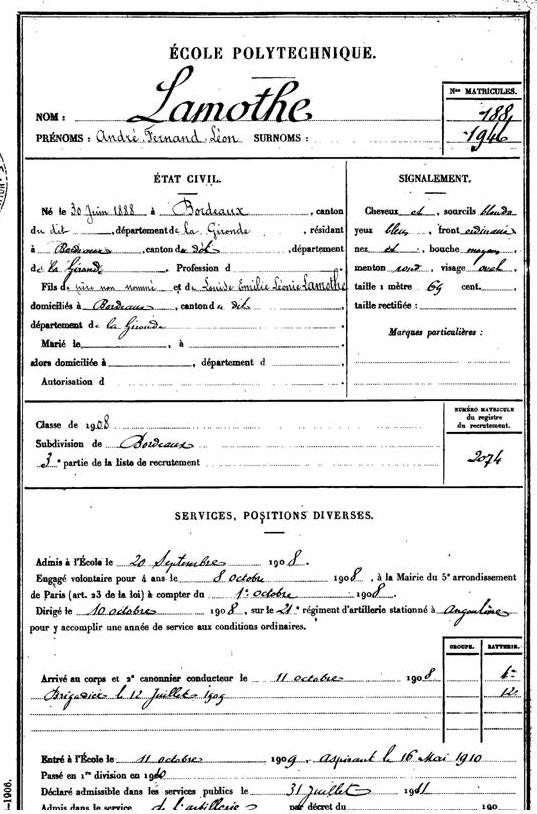 ÉCOLE POLYTECHNIQUE.
NOM : Lamothe
PRÉNOMS : André Fernand Léon SURNOMS :
Nos MATRICULES.
188
1946
ÉTAT CIVIL.
Né le 30 Juin 1888 à Bordeaux, canton
du dit, département de la Gironde, résidant
à Bordeaux, canton de dit, département
de la Gironde. Profession d
Fils de père non nommé et de Louise Emilie Léonie Lamothe
domiciliés à Bordeaux, canton de dit,
département de la Gironde
Marié le, à
alors domiciliée à, département d
Autorisation d
SIGNALEMENT.
Cheveux et, sourcils blonds
yeux bleus, front ordinaire
nez et, bouche moyens
menton rond, visage ovale,
taille 1 mètre 64 cent.
taille rectifiée :
Marques particulières :
Classe de 1908
Subdivision de Bordeaux
3e partie de la liste de recrutement
NUMÉRO MATRICULE
du registre
du recrutement.
2074
SERVICES, POSITIONS DIVERSES.
Admis à l'École le 20 Septembre 1908.
Engagé volontaire pour 4 ans le 8 octobre 1908, à la Mairie du 5e arrondissement
de Paris (art. 23 de la loi) à compter du 1er octobre 1908.
Dirigé le 10 octobre 1908, sur le 21e régiment d'artillerie stationné à Angoulême
pour y accomplir une année de service aux conditions ordinaires.
GROUPE. BATTERIE.
Arrivé au corps et 2e canonnier conducteur le 11 octobre 1908
Brigadier le 12 Juillet 1909 12e
Entré à l'École le 11 octobre 1909. Aspirant le 16 Mai 1910
Passé en 1re division en 1910
Déclaré admissible dans les services publics le 31 juillet 1911
Admis dans le service de l'artillerie par décret du 190
—1906.